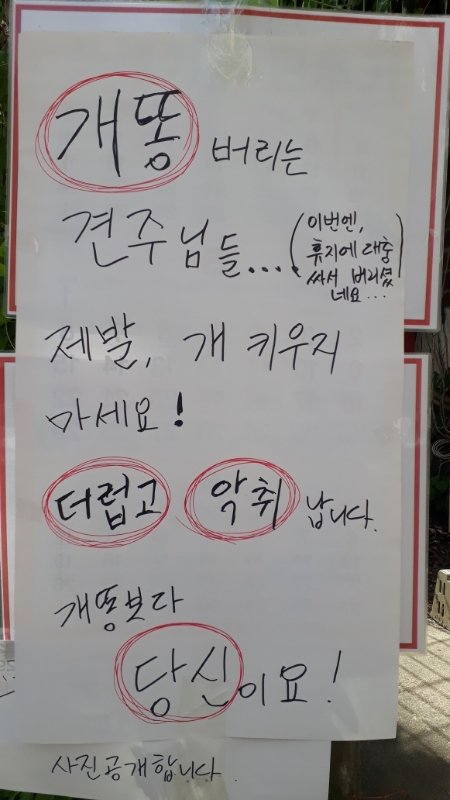 개똥 버리는
견주님들...
(이번엔,
휴지에 대충
싸서 버리셨
네요...)
제발, 개 키우지
마세요!
더럽고 악취 납니다.
개똥보다
당신이요!
사진공개합니다.